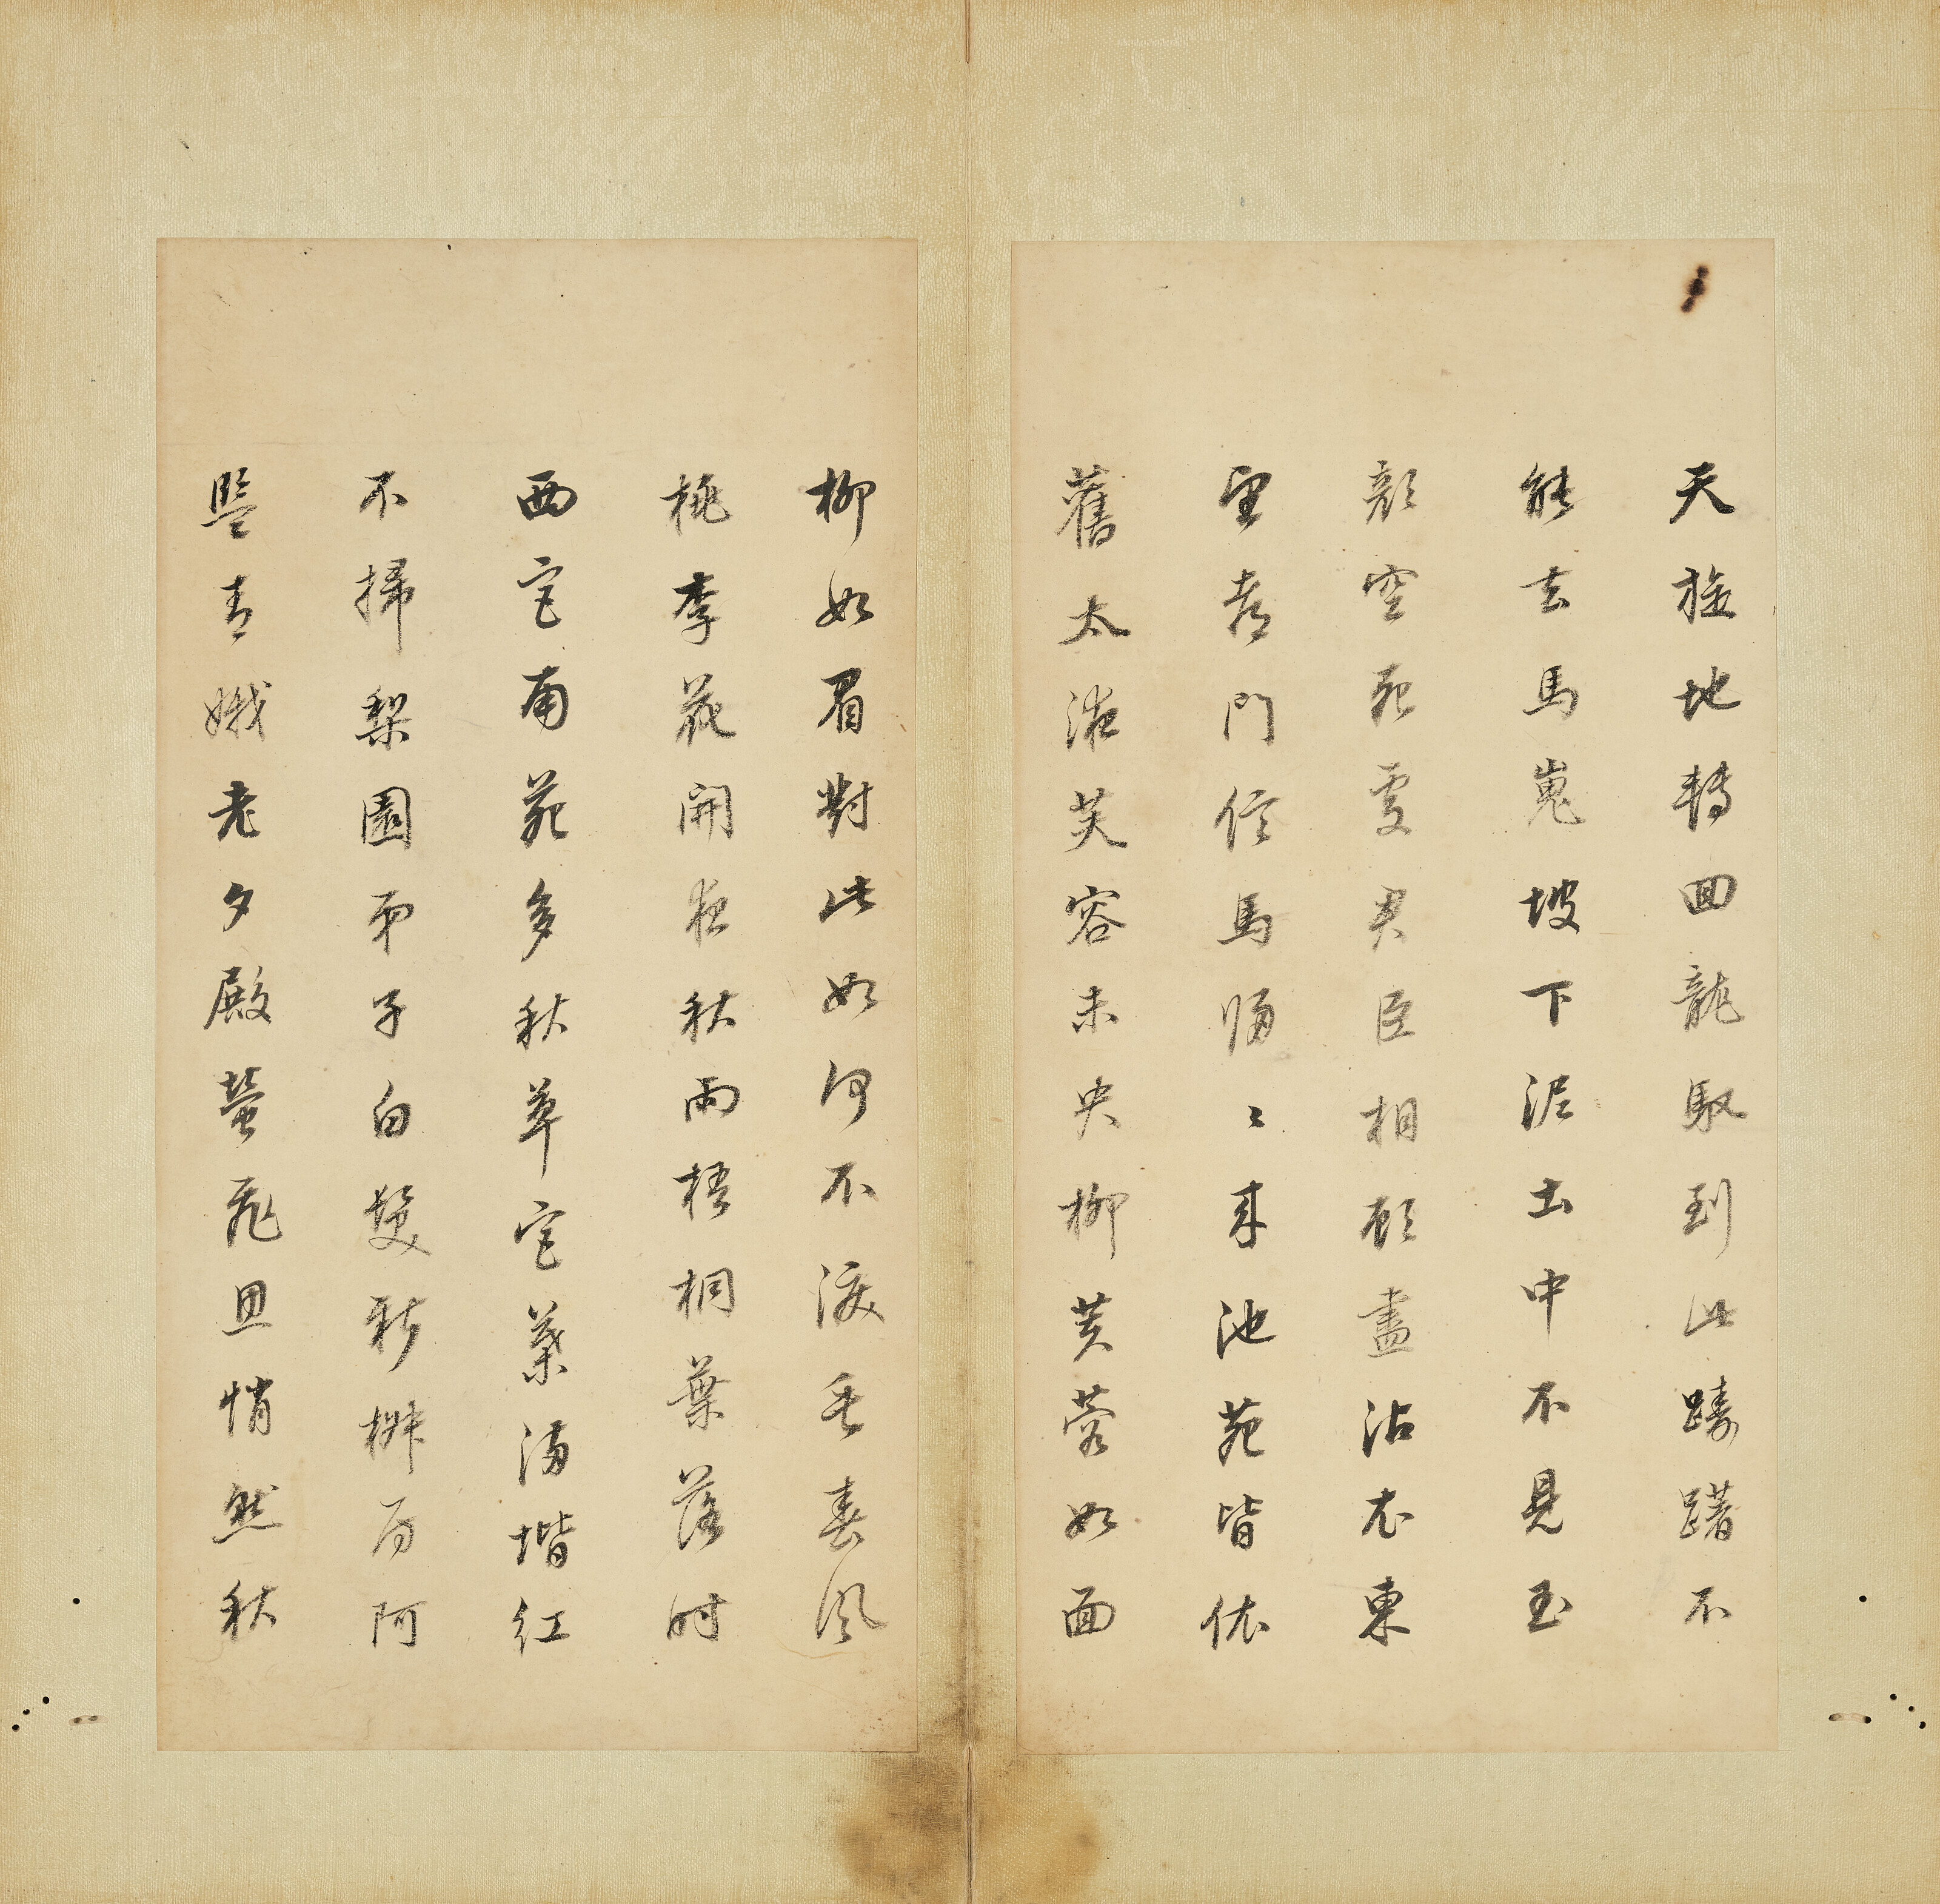 天旋地轉回龍馭到此躊躇不
能去馬嵬坡下泥土中不見玉
顏空死處君臣相顧盡沾衣東
望都門信馬歸〻來池苑皆依
舊太液芙容未央柳芙蓉如面
柳如眉對此如何不淚垂春風
桃李花開夜秋雨梧桐葉落時
西宮南苑多秋草宮葉滿堦紅
不掃梨園弟子白髮新椒房阿
監青娥老夕殿螢飛思悄然秋